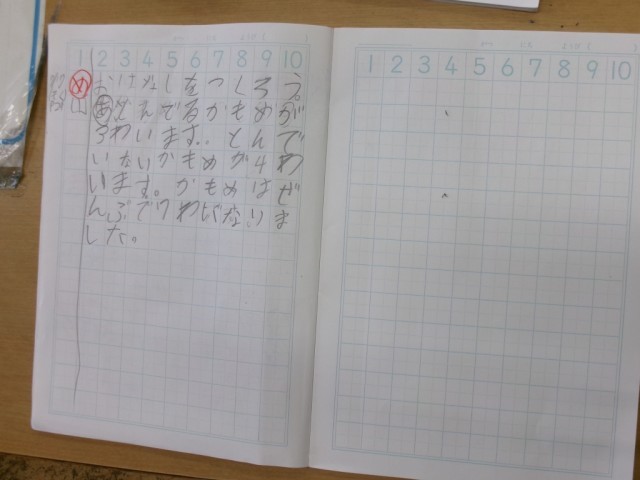 1 2 3 4 5 6 7 8 9 10
め おはなしをつくろう。
あ とんでるかもめが
3わいます。とんで
いないかもめが4わ
います。かもめはぜ
んぶで7わになりま
した。
1 2 3 4 5 6 7 8 9 10